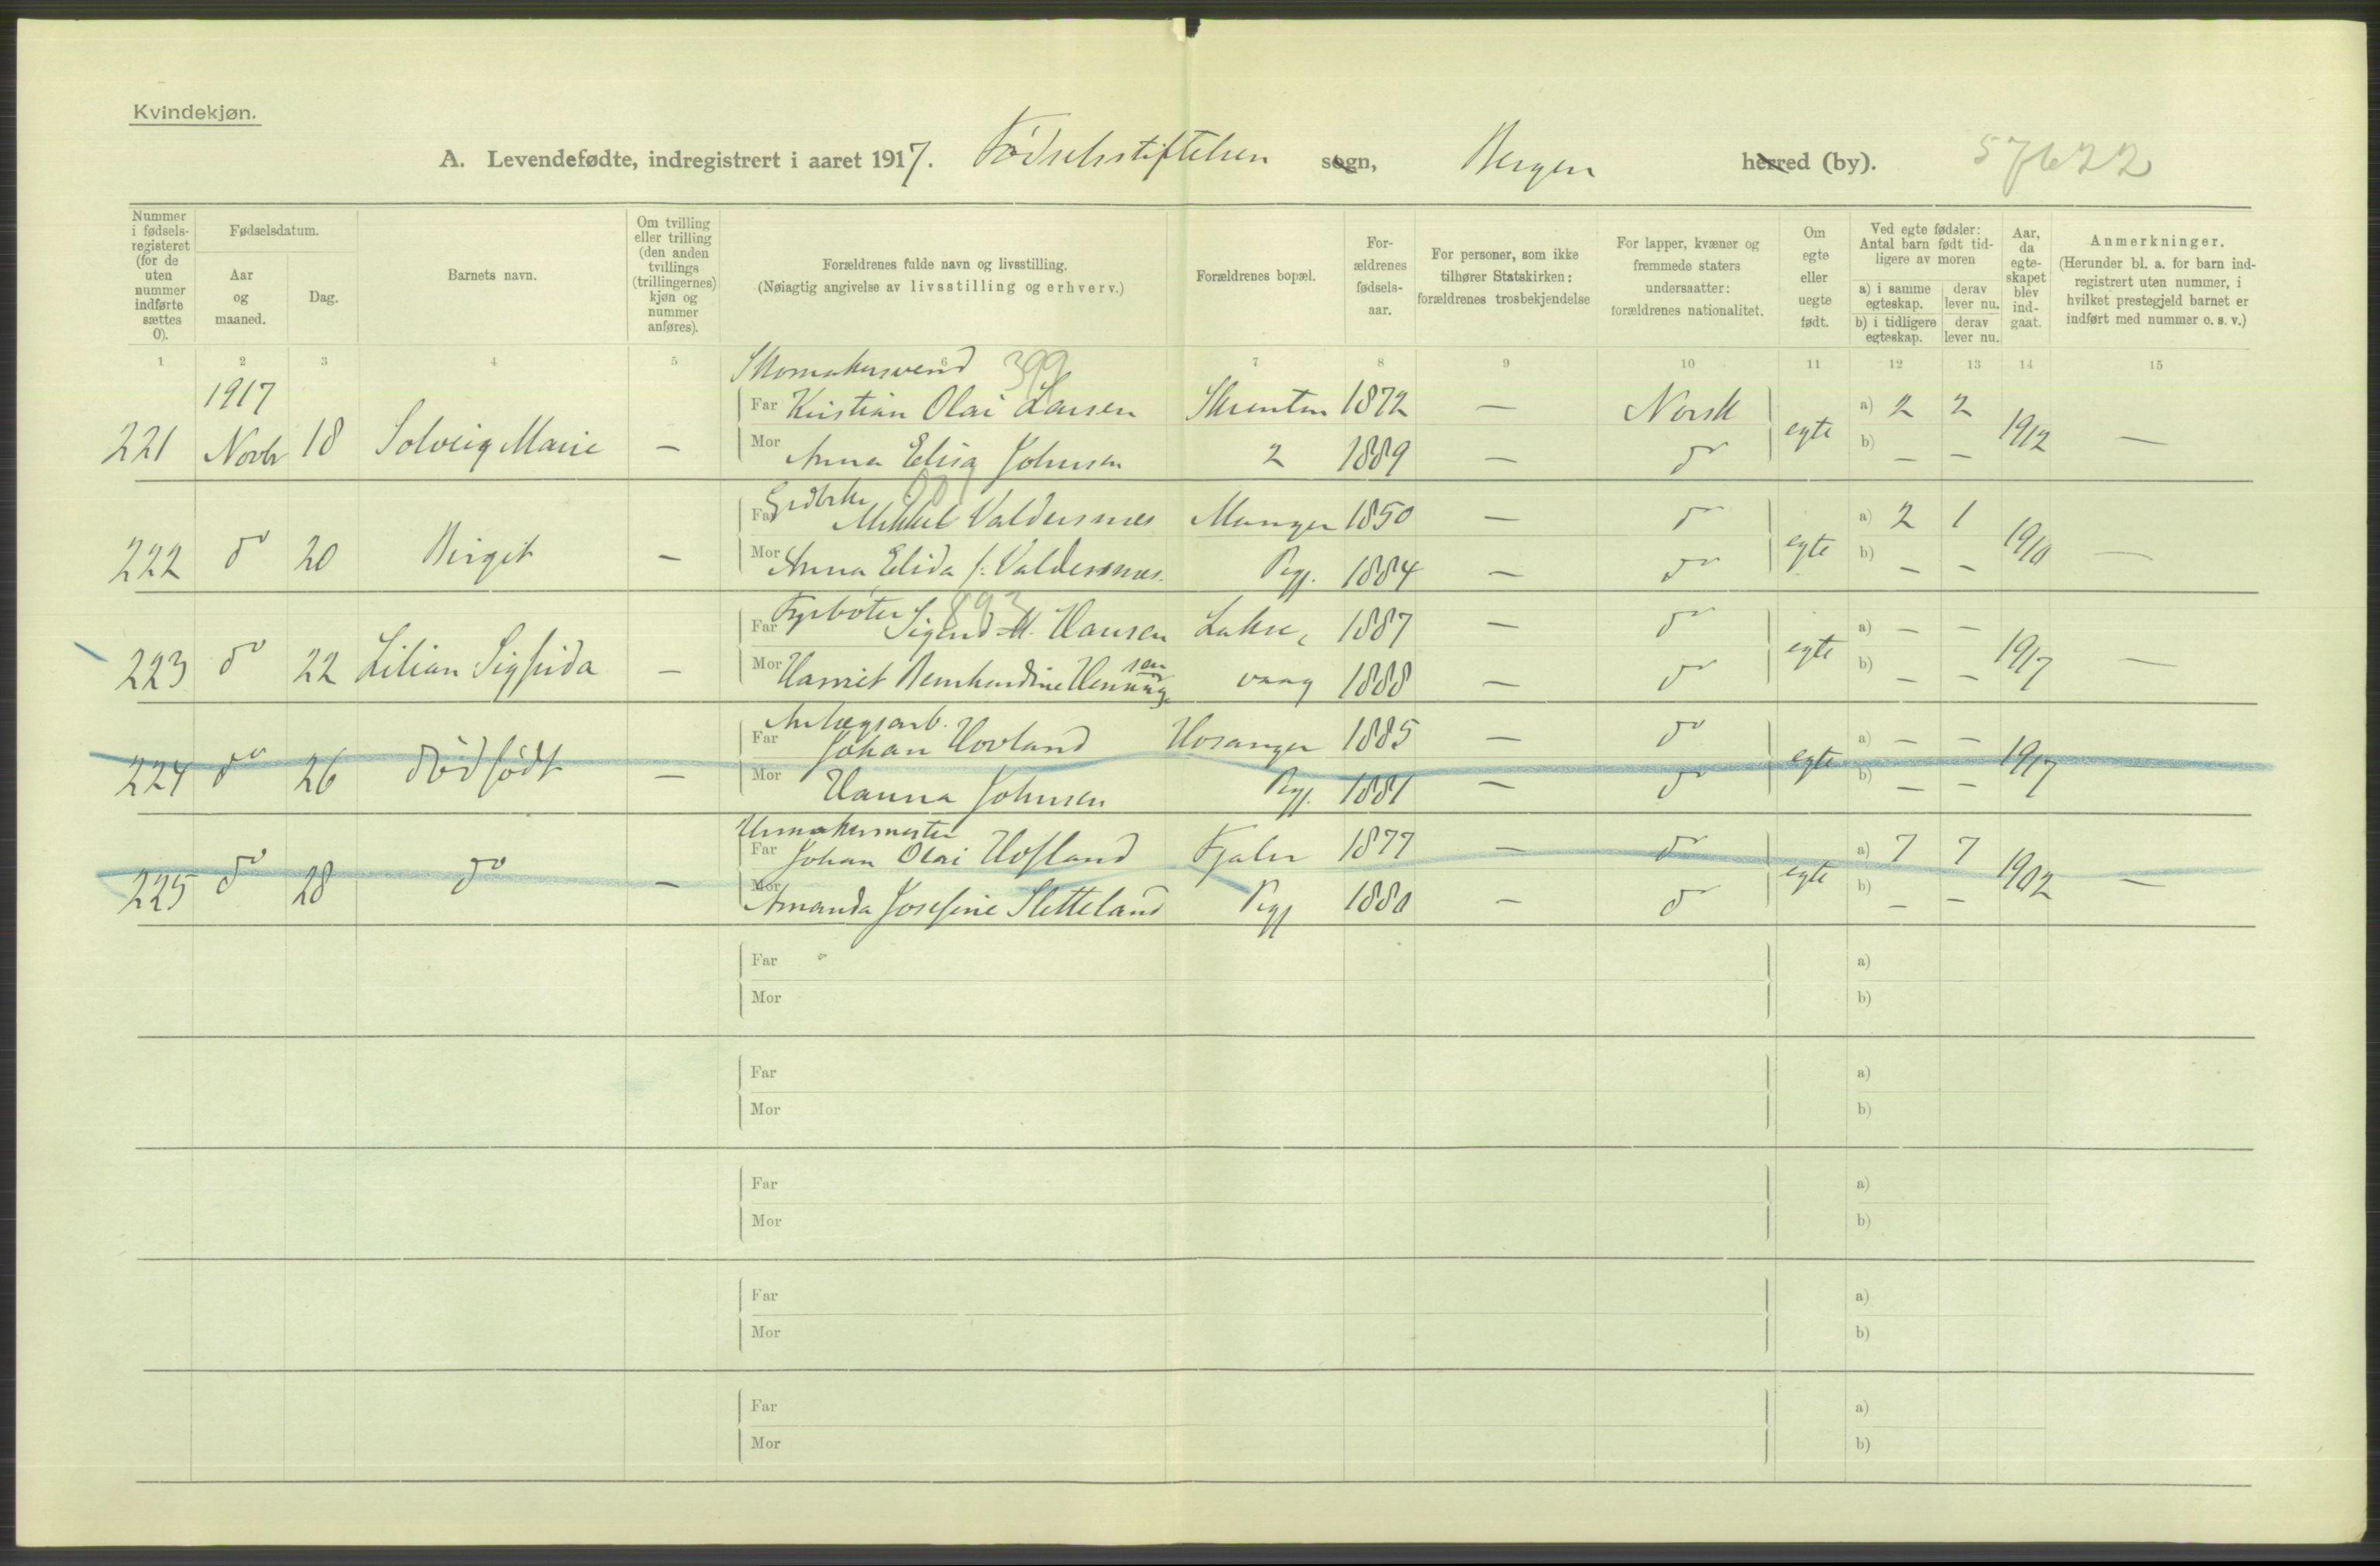 Kvindekjøn.
A. Levendefødte, indregistrert i aaret 1917. Fødselsstiftelsen sogn, Bergen herred (by). 57622
Nummer i fødsels-registeret (for de uten nummer indførte sættes 0).
Fødselsdatum.
Aar og maaned.
Dag.
Barnets navn.
Om tvilling eller trilling (den anden tvillings (trillingernes) kjøn og nummer anføres).
Forældrenes fulde navn og livsstilling.
(Nøiagtig angivelse av livsstilling og erhverv.)
Forældrenes bopæl.
For-ældrenes fødsels-aar.
For personer, som ikke tilhører Statskirken: forældrenes trosbekjendelse
For lapper, kvæner og fremmede staters undersaatter: forældrenes nationalitet.
Om egte eller uegte født.
Ved egte fødsler: Antal barn født tid-ligere av moren
a) i samme egteskap. derav lever nu.
b) i tidligere egteskap. derav lever nu.
Aar, da egte-skapet blev ind-gaat.
Anmerkninger.
(Herunder bl. a. for barn ind-registrert uten nummer, i hvilket prestegjeld barnet er indført med nummer o. s. v.)
1 2 3 4 5 6 7 8 9 10 11 12 13 14 15
Skomakersvend 399
1917
Far Kristian Olai Larsen Skrenten 1872 — Norsk a) 2 2
221 Novbr 18 Solveig Marie — egte 1912 —
Mor Anna Elisa Johnsen 2 1889 — do b) — —
Grdbrkr
Far Mikkel Valdersnes Manger 1850 — do a) 2 1
222 do 20 Birgit — egte 1910 —
Mor Anna Elida f. Valdersnes. Pgj. 1884 — do b) — —
Fyrbøter 893
Far Sigurd M. Hansen Lakse 1887 — do a) — —
223 do 22 Lilian Sigfrida — egte 1917 —
Mor Harriet Bernhardine Henningsen vaag 1888 — do b) — —
Anlægsarb.
Far Johan Hovland Hosanger 1885 — do a) — —
224 do 26 dødfødt — egte 1917 —
Mor Hanna Johnsen Pgj. 1881 — do b) — —
Urmakermester
Far Johan Olai Hofland Fjaler 1877 — do a) 7 7
225 do 28 do — egte 1902 —
Mor Amanda Josefine Sletteland Pgj 1880 — do b) — —
Far a)
Mor b)
Far a)
Mor b)
Far a)
Mor b)
Far a)
Mor b)
Far a)
Mor b)